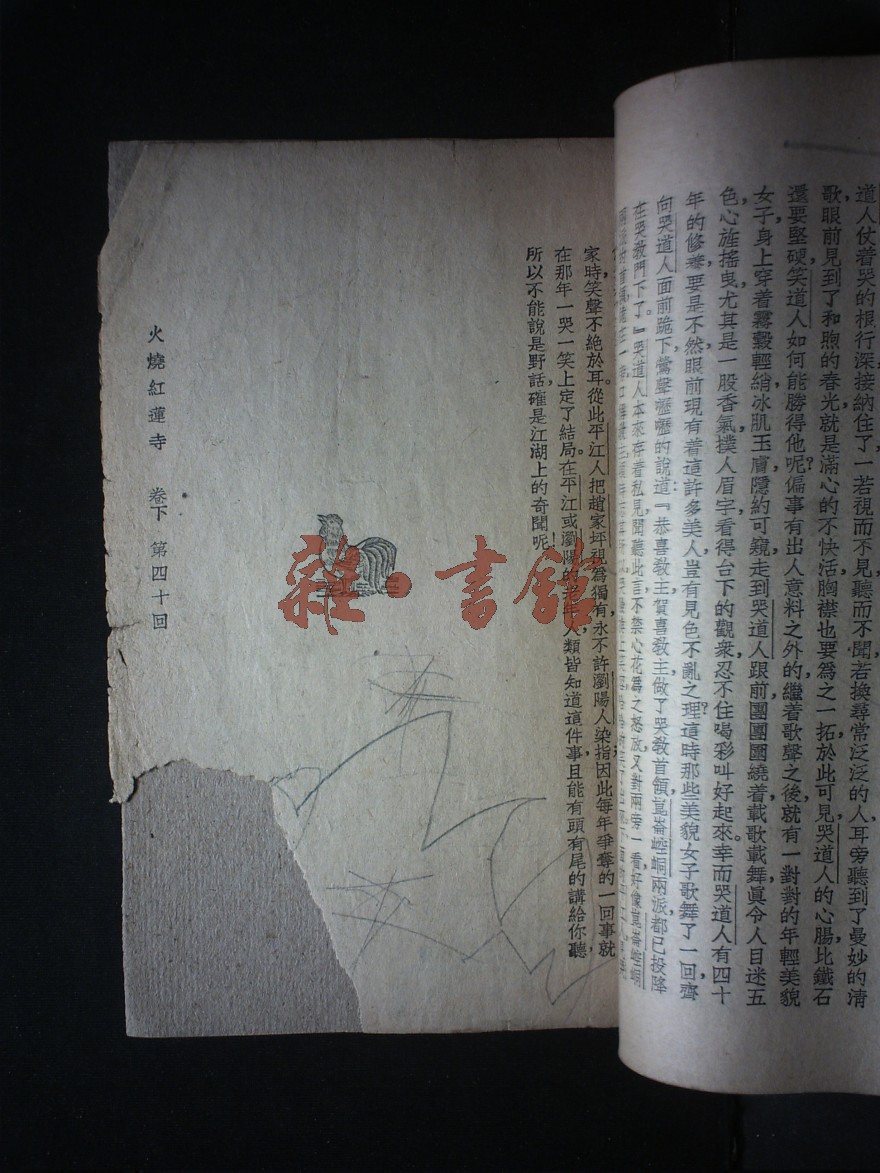 道人仗着哭的根行深,接納住了,一若視而不見,聽而不聞,若換尋常泛泛的人,耳旁聽到了曼妙的清
歌,眼前見到了和煦的春光,就是滿心的不快活,胸襟也要爲之一拓,於此可見哭道人的心腸比鐵石
還要堅硬,笑道人如何能勝得他呢?偏事有出人意料之外的,繼着歌聲之後,就有一對對的年輕美貌
女子,身上穿着霧縠輕綃,冰肌玉膚,隱約可窺,走到哭道人跟前,團團圍繞着,載歌載舞,眞令人目迷五
色,心旌搖曳,尤其是一股香氣,撲人眉宇,看得台下的觀衆,忍不住喝彩叫好起來。幸而哭道人有四十
年的修養,要是不然,眼前現有着這許多美人,豈有見色不亂之理?這時那些美貌女子,歌舞了一回,齊
向哭道人面前跪下,鶯聲嚦嚦的說道:『恭喜敎主,賀喜敎主,做了哭敎首領,崑崙崆峒兩派,都已投降
在哭敎門下了。』哭道人本來存着私見,聞聽此言,不禁心花爲之怒放,又對兩旁一看,好像崑崙崆峒
家時,笑聲不絶於耳。從此平江人把趙家坪視爲獨有,永不許瀏陽人染指,因此每年爭奪的一回事,就
在那年一哭一笑上定了結局。在平江或瀏陽的老年人,類皆知道這件事,且能有頭有尾的講給你聽,
所以不能說是野話,確是江湖上的奇聞呢!
火燒紅蓮寺 卷下 第四十回
雜·書館